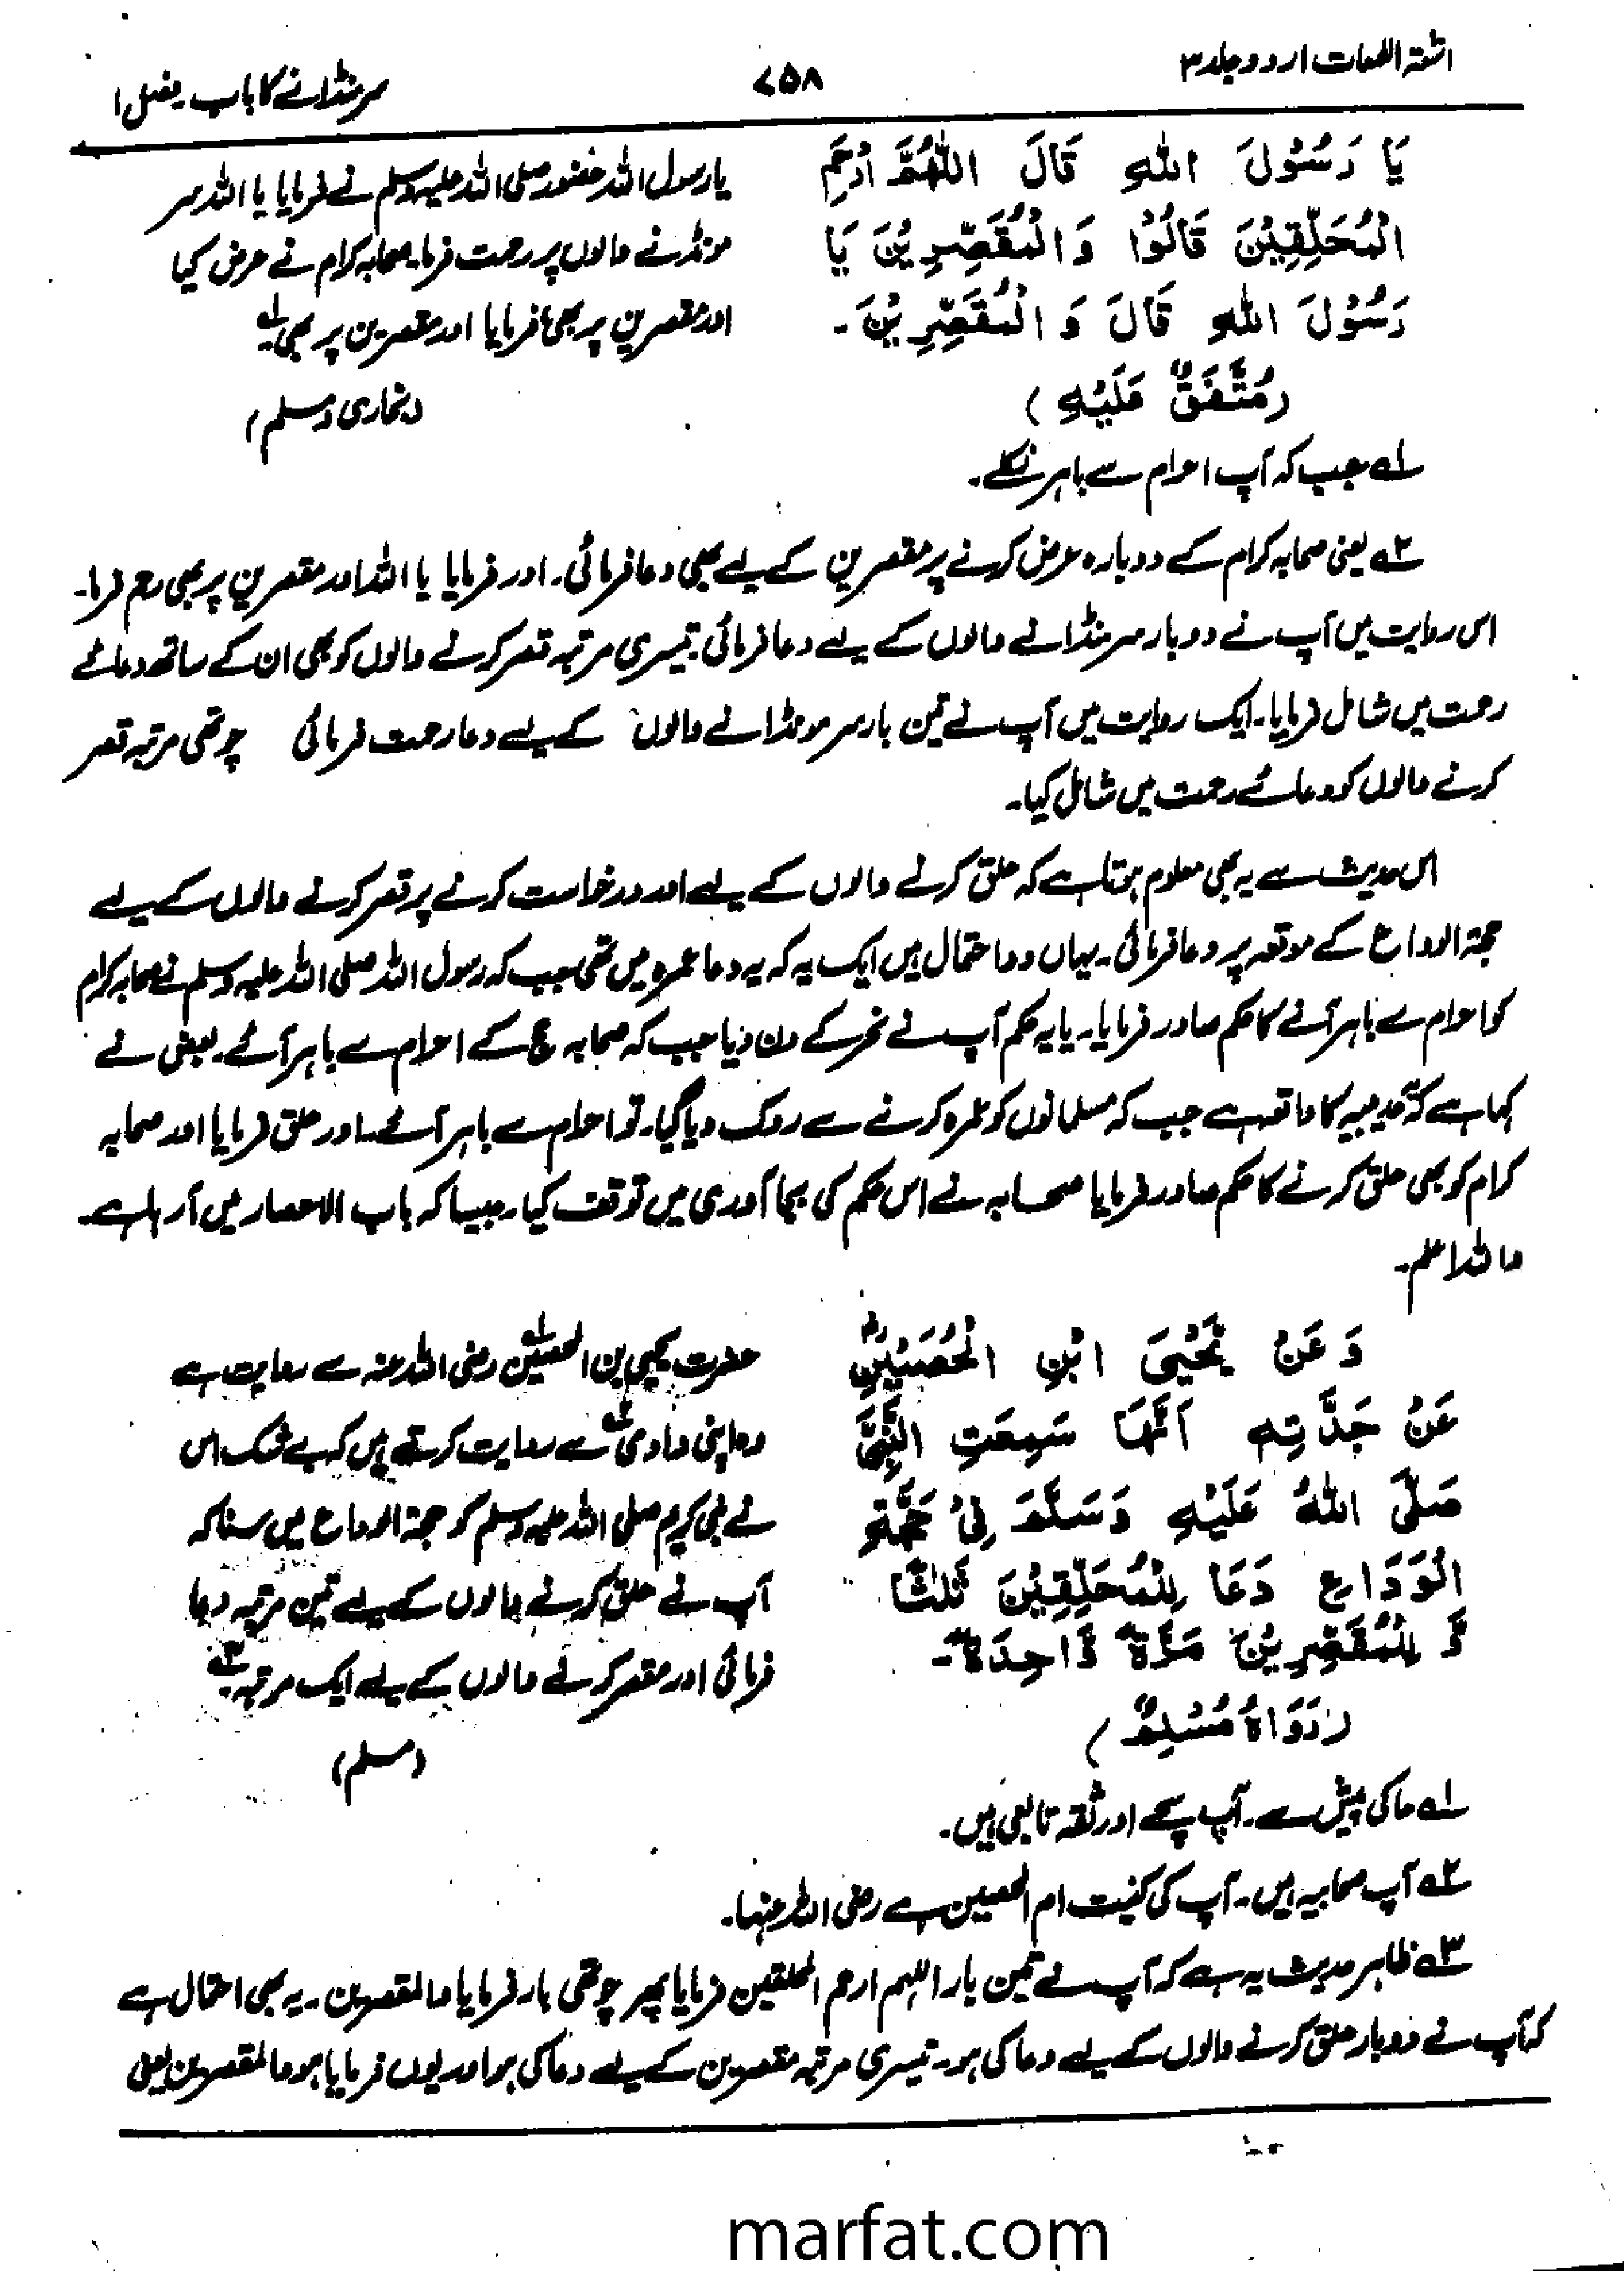 اشعۃ اللمعات اردو جلد ۳
۷۵۸
سر منڈانے کا باب ۔ فصل ۱
يَا رَسُوْلَ اللّٰهِ قَالَ اللّٰهُمَّ ارْحَمِ
الْمُحَلِّقِيْنَ قَالُوْا وَالْمُقَصِّرِيْنَ يَا
رَسُوْلَ اللّٰهِ قَالَ وَالْمُقَصِّرِيْنَ۔
(مُتَّفَقٌ عَلَيْهِ)
یا رسول اللہ حضور صلی اللہ علیہ وسلم نے فرمایا یا اللہ سر
مونڈنے والوں پر رحمت فرما۔ صحابہ کرام نے عرض کیا
اور مقصرین پر بھی؟ فرمایا اور مقصرین پر بھی ۲ے۔
(بخاری و مسلم)
۱ے جب کہ آپ احرام سے باہر نکلے۔
۲ے یعنی صحابہ کرام کے دوبارہ عرض کرنے پر مقصرین کے لیے بھی دعا فرمائی۔ اور فرمایا یا اللہ اور مقصرین پر بھی رحم فرما۔
اس روایت میں آپ نے دو بار سر منڈانے والوں کے لیے دعا فرمائی۔ تیسری مرتبہ قصر کرنے والوں کو بھی ان کے ساتھ دعائے
رحمت میں شامل فرمایا۔ ایک روایت میں آپ نے تین بار سر مونڈانے والوں کے لیے دعا رحمت فرمائی چوتھی مرتبہ قصر
کرنے والوں کو دعائے رحمت میں شامل کیا۔
اس حدیث سے یہ بھی معلوم ہوتا ہے کہ حلق کرنے والوں کے لیے اور درخواست کرنے پر قصر کرنے والوں کے لیے
حجۃ الوداع کے موقعہ پر دعا فرمائی۔ یہاں دو احتمال ہیں ایک یہ کہ یہ دعا عمرہ میں تھی جب کہ رسول اللہ صلی اللہ علیہ وسلم نے صحابہ کرام
کو احرام سے باہر آنے کا حکم صادر فرمایا۔ یا یہ حکم آپ نے نحر کے دن دیا جب کہ صحابہ حج کے احرام سے باہر آئے۔ بعض نے
کہا ہے کہ حدیبیہ کا واقعہ ہے جب کہ مسلمانوں کو عمرہ کرنے سے روک دیا گیا۔ تو احرام سے باہر آئے۔ اور حلق فرمایا اور صحابہ
کرام کو بھی حلق کرنے کا حکم صادر فرمایا صحابہ نے اس حکم کی بجا آوری میں توقف کیا۔ جیسا کہ باب الاحصار میں آ رہا ہے۔
واللہ اعلم۔
وَعَنْ يَحْيَى ابْنِ الْحُصَيْنِ
عَنْ جَدَّتِهٖ اَنَّهَا سَمِعَتِ النَّبِيَّ
صَلَّى اللّٰهُ عَلَيْهِ وَسَلَّمَ فِيْ حَجَّةِ
الْوَدَاعِ دَعَا لِلْمُحَلِّقِيْنَ ثَلٰثًا
وَّ لِلْمُقَصِّرِيْنَ مَرَّةً وَّاحِدَةً۔
(رَوَاهُ مُسْلِمٌ)
حضرت یحیی بن الحصین ۱ے رضی اللہ عنہ سے روایت ہے
وہ اپنی دادی ۲ے سے روایت کرتے ہیں کہ بے شک اس
نے نبی کریم صلی اللہ علیہ وسلم کو حجۃ الوداع میں سنا کہ
آپ نے حلق کرنے والوں کے لیے تین مرتبہ دعا
فرمائی اور مقصر کرنے والوں کے لیے ایک مرتبہ ۳ے۔
(مسلم)
۱ے حا کی پیش سے۔ آپ سچے اور ثقہ تابعی ہیں۔
۲ے آپ صحابیہ ہیں۔ آپ کی کنیت ام الحصین ہے رضی اللہ عنہا۔
۳ے ظاہر حدیث یہ ہے کہ آپ نے تین بار اللہم ارحم المحلقین فرمایا پھر چوتھی بار فرمایا والمقصرین۔ یہ بھی احتمال ہے
کہ آپ نے دو بار حلق کرنے والوں کے لیے دعا کی ہو۔ تیسری مرتبہ مقصرین کے لیے دعا کی ہو اور یوں فرمایا ہو والمقصرین یعنی
marfat.com